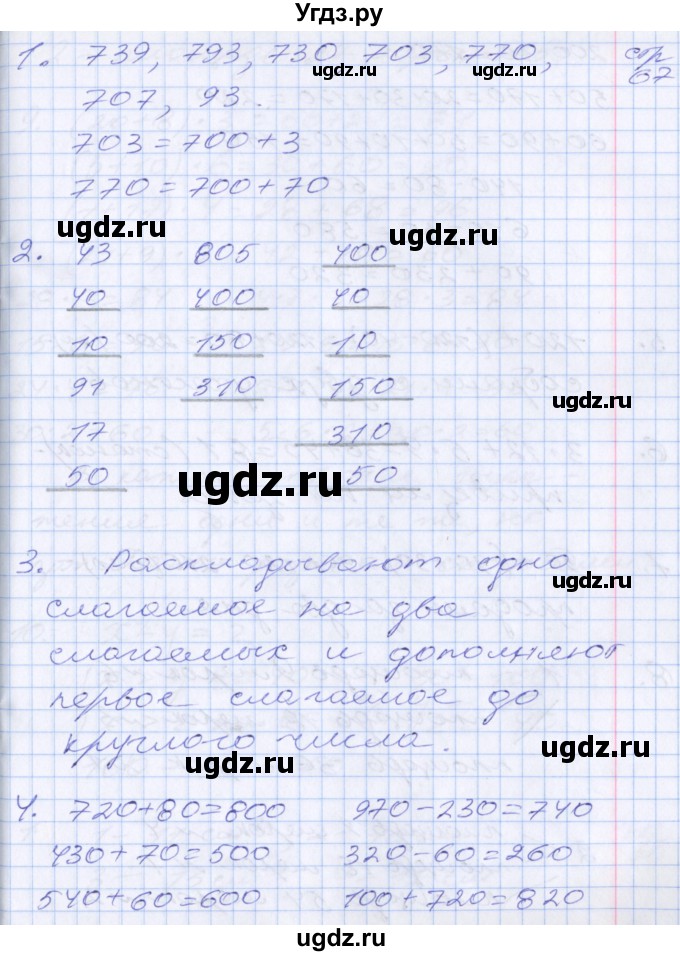 Угдз.ру
1. 739, 793, 730 703, 770,
стр 67
707, 93.
703 = 700 + 3
770 = 700 + 70
2. 43 805 400
40 400 40
10 150 10
91 310 150
17 310
50 50
3. Раскладывают одно
слагаемое на два
слагаемых и дополняют
первое слагаемое до
круглого числа.
4. 720 + 80 = 800 970 - 230 = 740
430 + 70 = 500 320 - 60 = 260
540 + 60 = 600 100 + 720 = 820
ugdz.ru
ugdz.ru
ugdz.ru
ugdz.ru
ugdz.ru
ugdz.ru
ugdz.ru
ugdz.ru
ugdz.ru
ugdz.ru